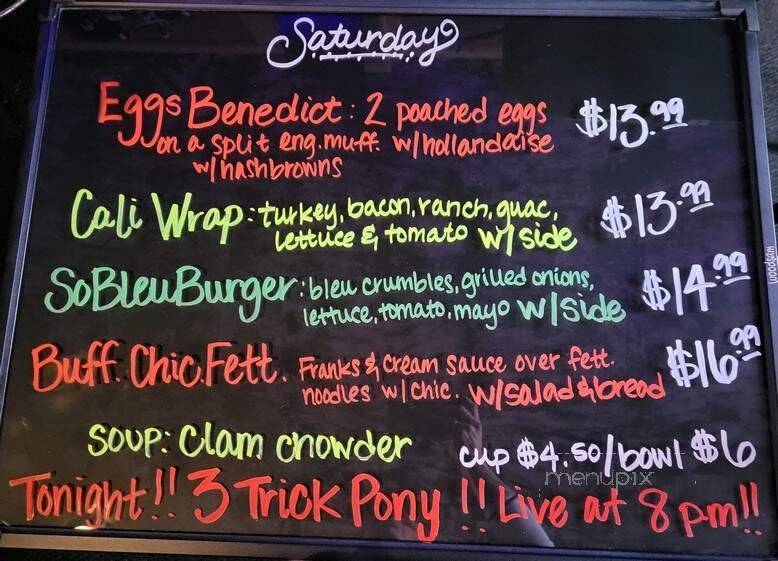 Saturday
Eggs Benedict: 2 poached eggs $13.99
on a split eng. muff. w/hollandaise
w/hashbrowns
Cali Wrap: turkey, bacon, ranch, guac, $13.99
lettuce & tomato w/side
SoBleuBurger: bleu crumbles, grilled onions, $14.99
lettuce, tomato, mayo w/side
Buff. Chic. Fett. Franks & cream sauce over fett. $16.99
noodles w/chic. w/salad & bread
Soup: Clam chowder cup $4.50/bowl $6
Tonight!! 3 Trick Pony!! Live at 8pm!!
menupix
woodsam